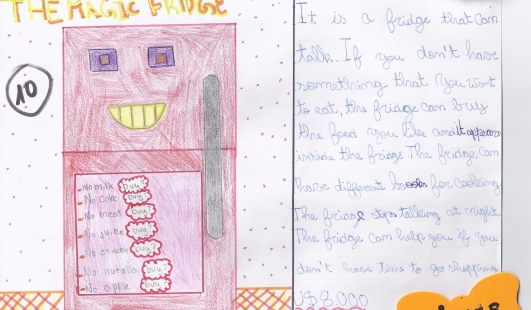 THE MAGIC FRIDGE
10
No milk buy?
No coke buy?
No meat buy?
No juice buy?
No chicken buy?
No nutella buy?
No apple buy?
It is a fridge that can
talk. If you don't have
something that you want
to eat, the fridge can buy
the food you like and it appears
inside the fridge. The fridge can
have different books for cooking.
The fridge stops talking at night.
The fridge can help you if you
don't have time to go shopping.
U$ 8,000